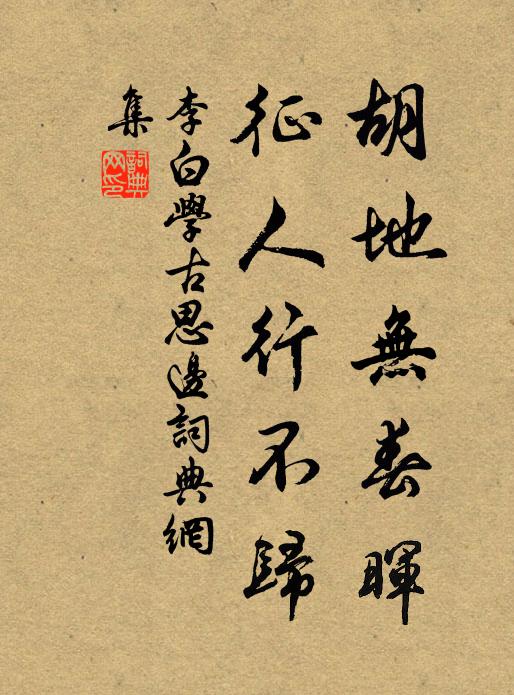 胡地無春暉
征人行不歸
李白學古思邊詞典網
集
詞典網印